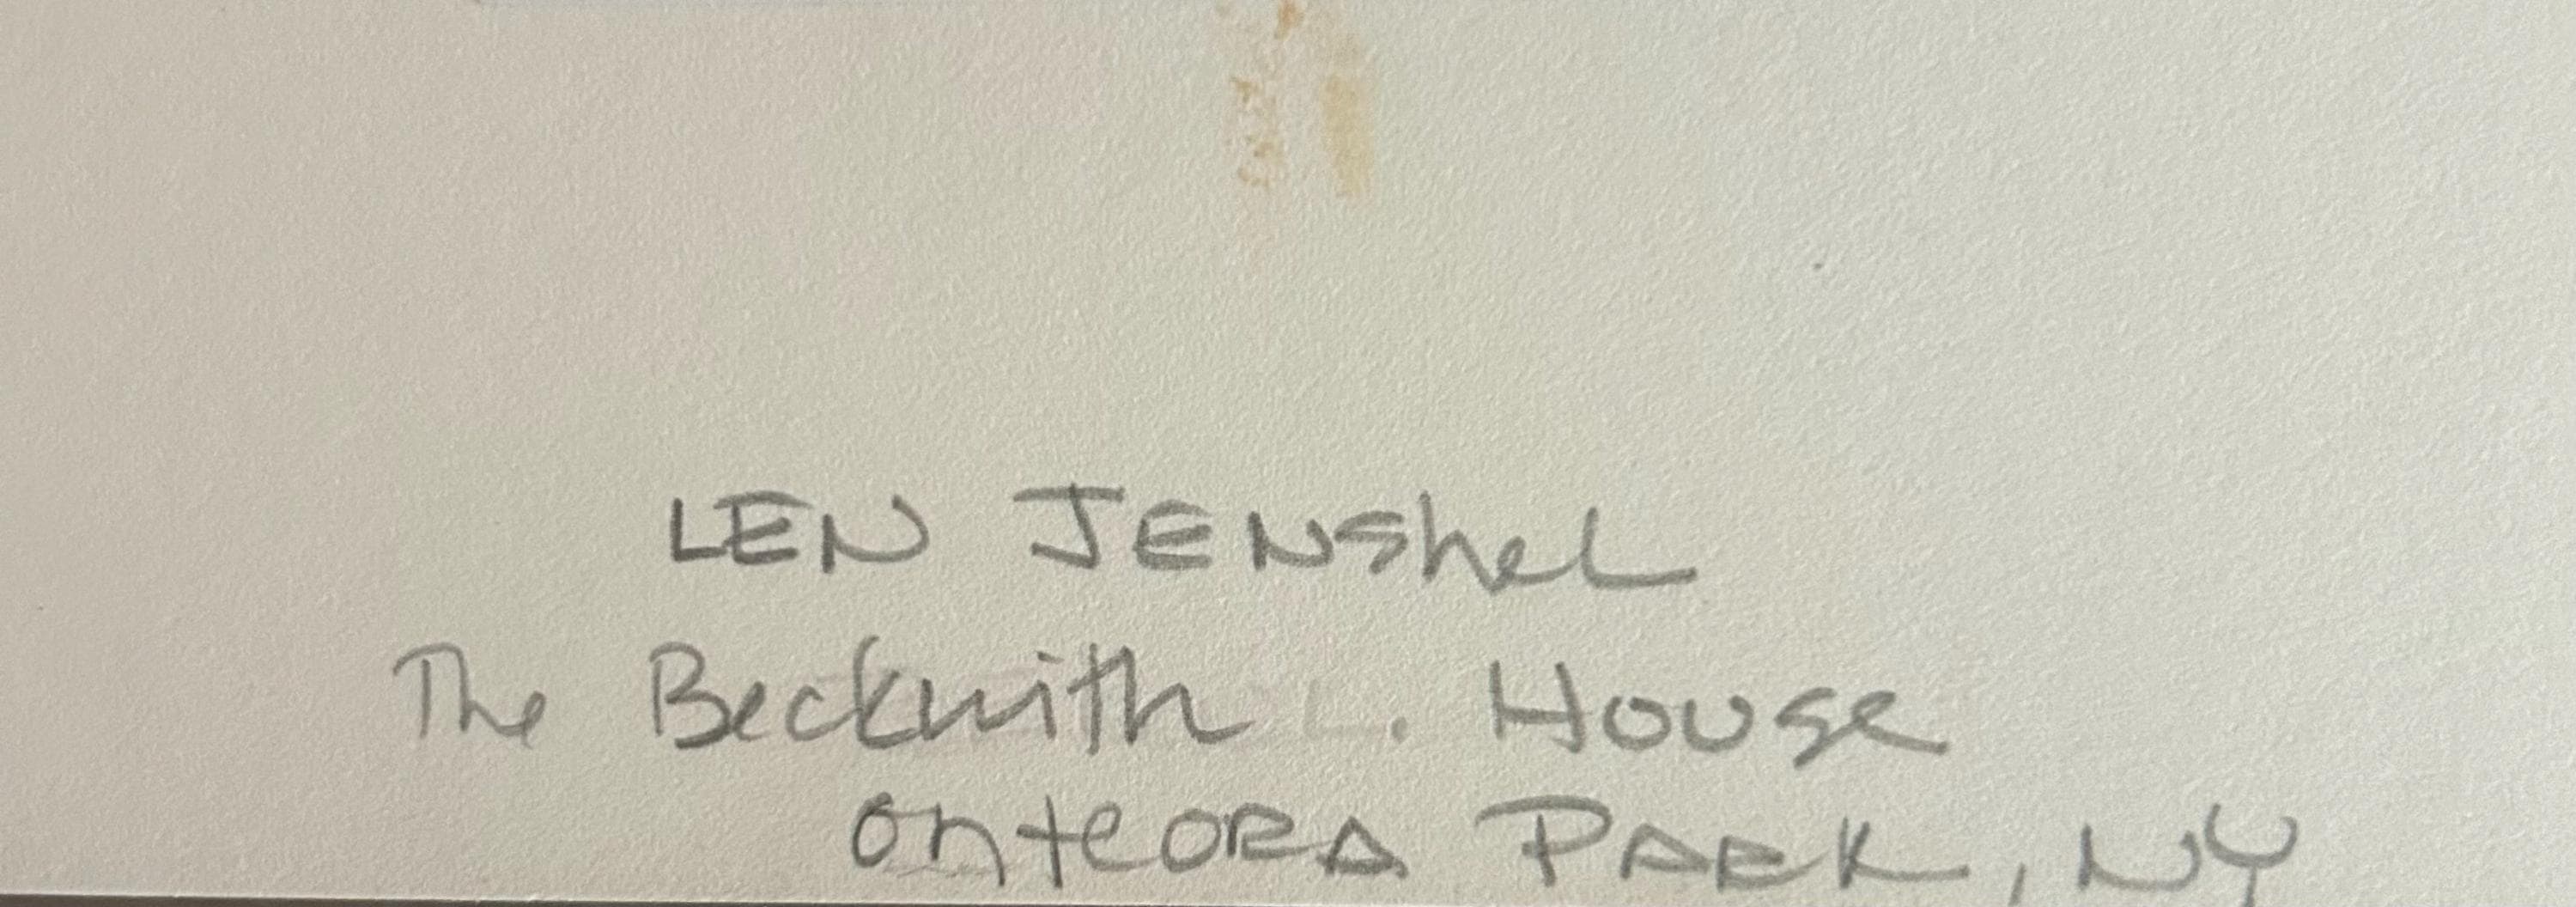 LEN JENShel
The Beckwith L. House
OnteORA PARK, NY